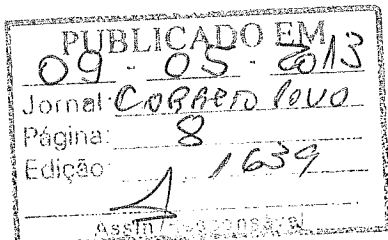 PUBLICADO EM
09 - 05 - 2013
Jornal: CORREIO POVO
Página: 8
Edição: 1639